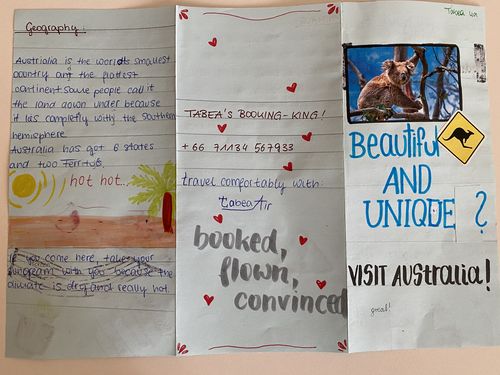 Geography
Australia is the worlds smallest
country and the flattest
continent some people call it
the land down under because
it las completly with the southern
hemisphere.
Australia has got 6 states
and two
hot hot...
If you come here, take your
suncream with you because the
climate is dry and really hot.
TABEA'S BOOKING-KING!
+66 71134 567933
travel comfortably with:
tabeaAir
booked,
flown,
convinced
Tabea
Beautiful
AND
UNIQUE ?
VISIT AUStralia!
great!